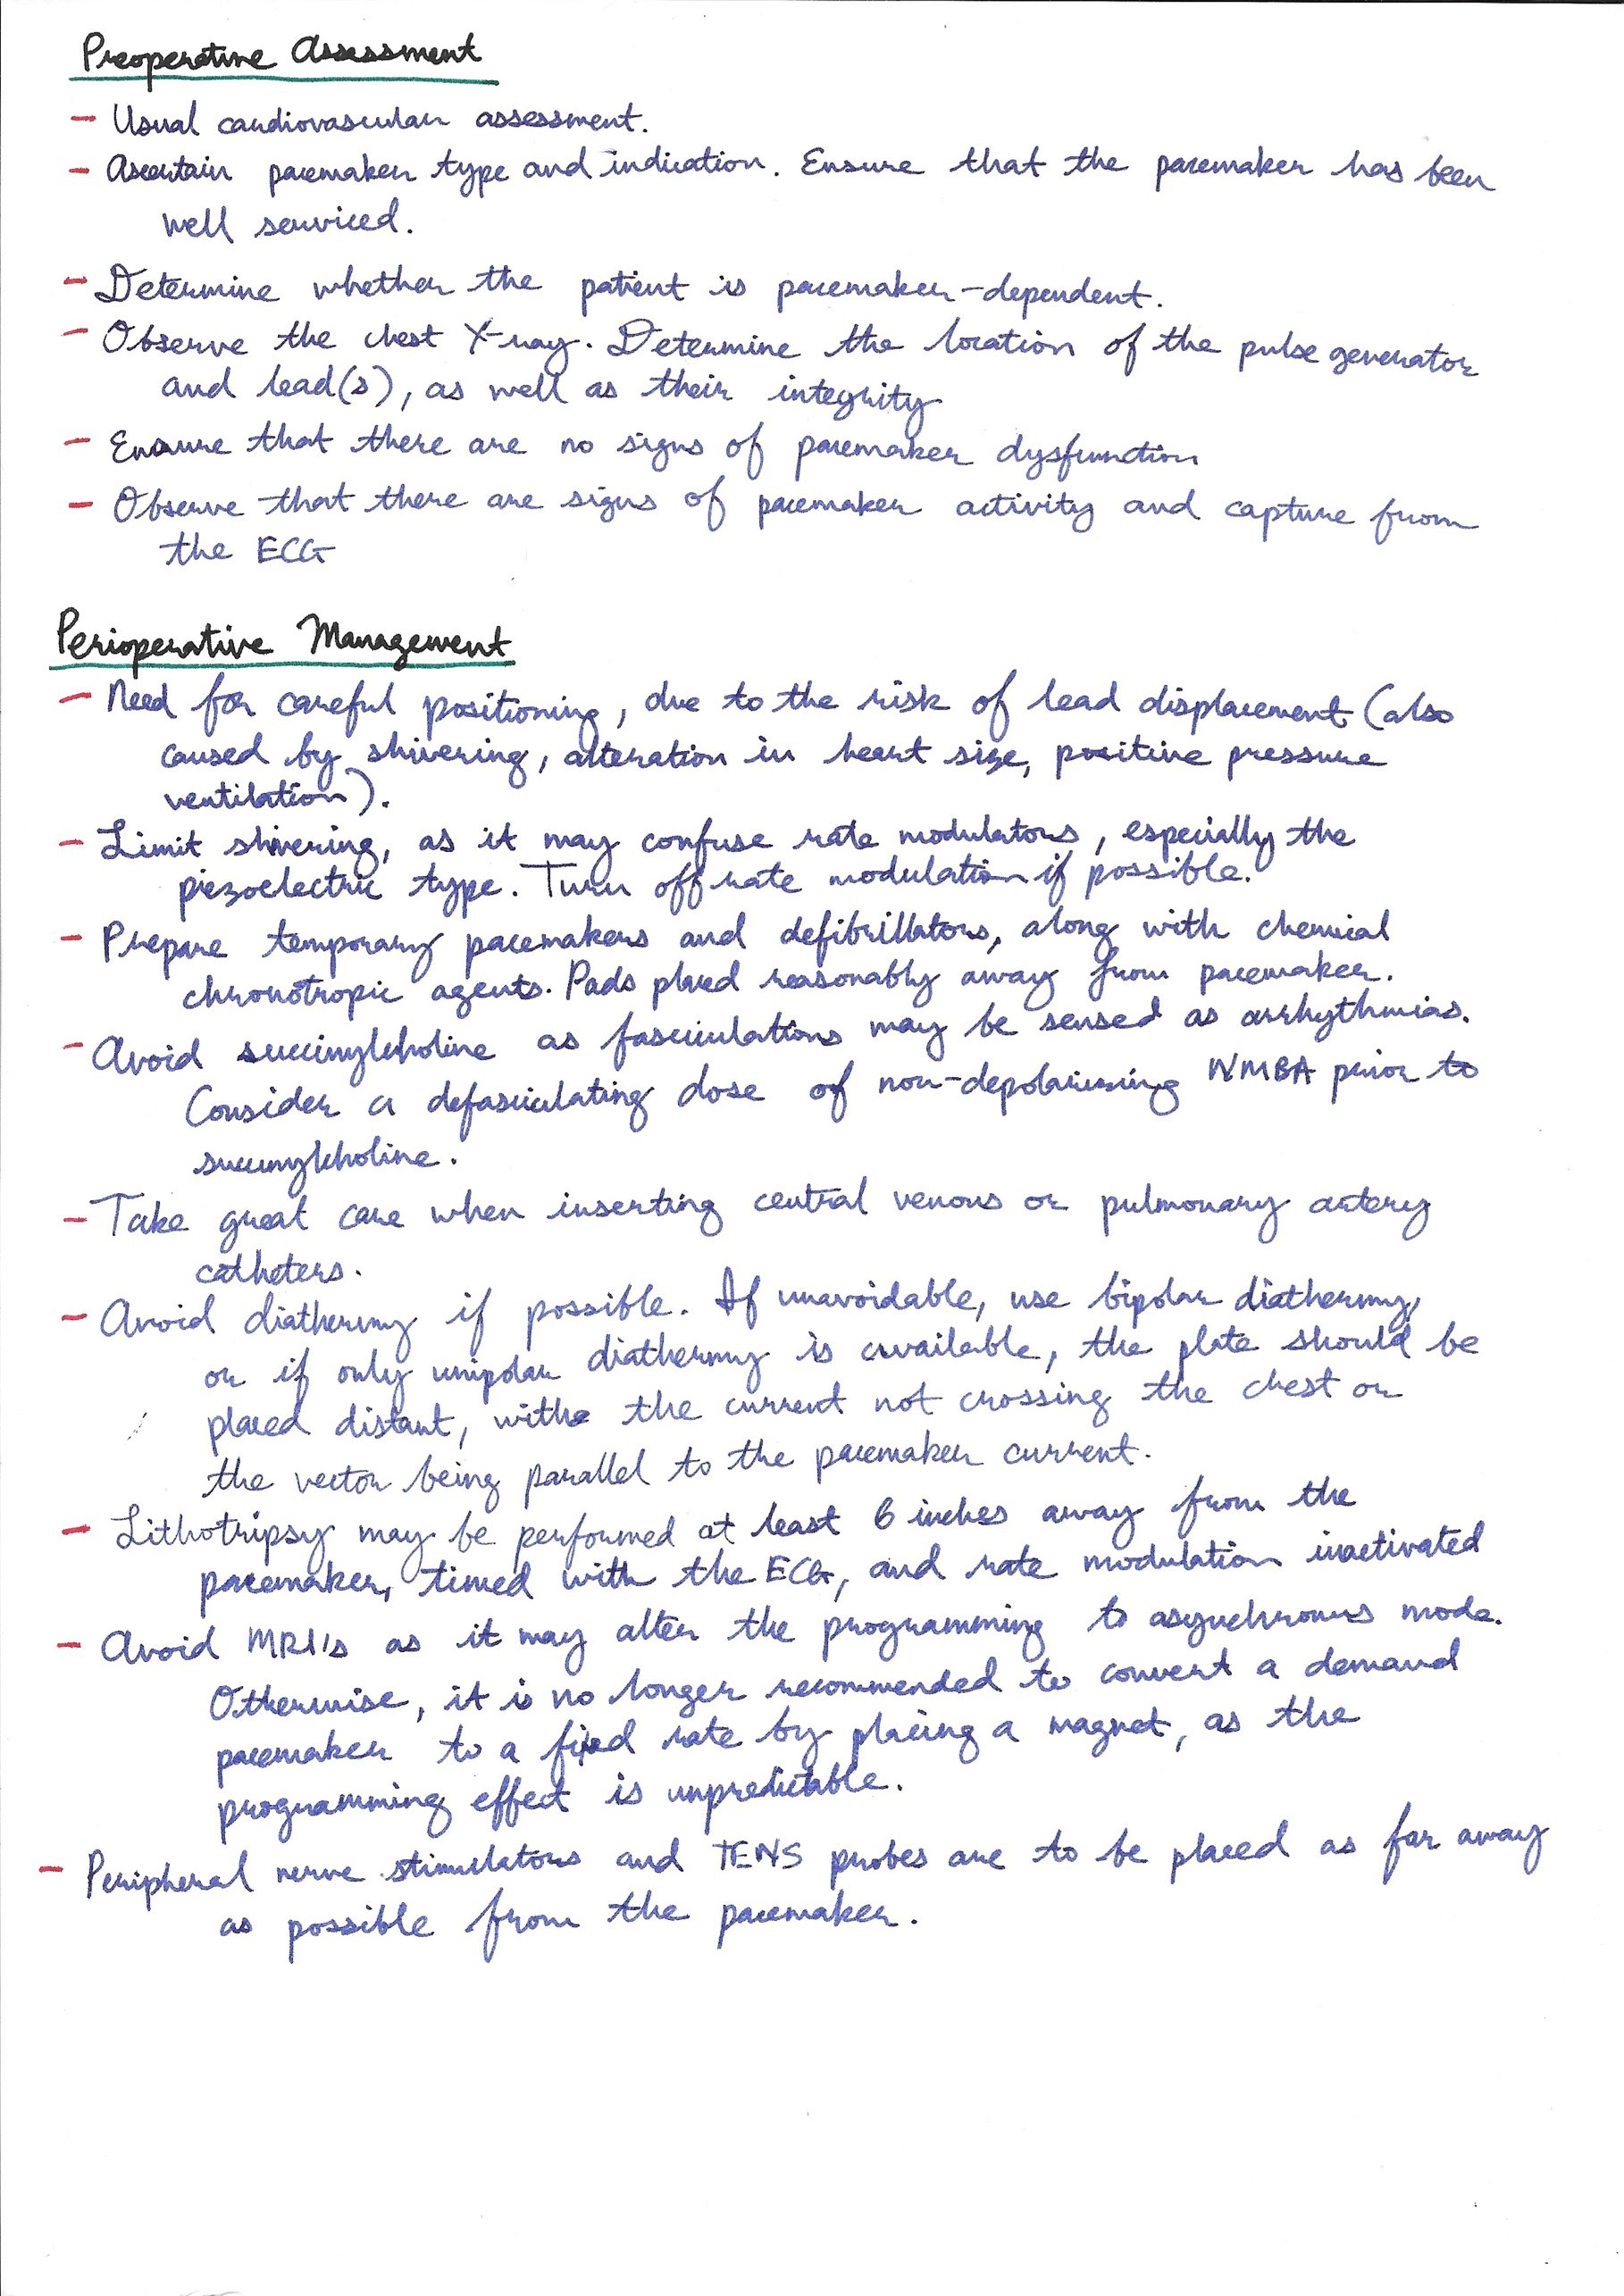 Preoperative Assessment
- Usual cardiovascular assessment.
- Ascertain pacemaker type and indication. Ensure that the pacemaker has been
well serviced.
- Determine whether the patient is pacemaker-dependent.
- Observe the chest X-ray. Determine the location of the pulse generator
and lead(s), as well as their integrity
- Ensure that there are no signs of pacemaker dysfunction
- Observe that there are signs of pacemaker activity and capture from
the ECG
Perioperative Management
- Need for careful positioning, due to the risk of lead displacement (also
caused by shivering, alteration in heart size, positive pressure
ventilation).
- Limit shivering, as it may confuse rate modulators, especially the
piezoelectric type. Turn off rate modulation if possible.
- Prepare temporary pacemakers and defibrillators, along with chemical
chronotropic agents. Pads placed reasonably away from pacemaker.
- Avoid succinylcholine as fasciculations may be sensed as arrhythmias.
Consider a defasciculating dose of non-depolarising NMBA prior to
succinylcholine.
- Take great care when inserting central venous or pulmonary artery
catheters.
- Avoid diathermy if possible. If unavoidable, use bipolar diathermy,
or if only unipolar diathermy is available, the plate should be
placed distant, with the current not crossing the chest or
the vector being parallel to the pacemaker current.
- Lithotripsy may be performed at least 6 inches away from the
pacemaker, timed with the ECG, and rate modulation inactivated
- Avoid MRI's as it may alter the programming to asynchronus mode.
Otherwise, it is no longer recommended to convert a demand
pacemaker to a fixed rate by placing a magnet, as the
programming effect is unpredictable.
- Peripheral nerve stimulators and TENS probes are to be placed as far away
as possible from the pacemaker.